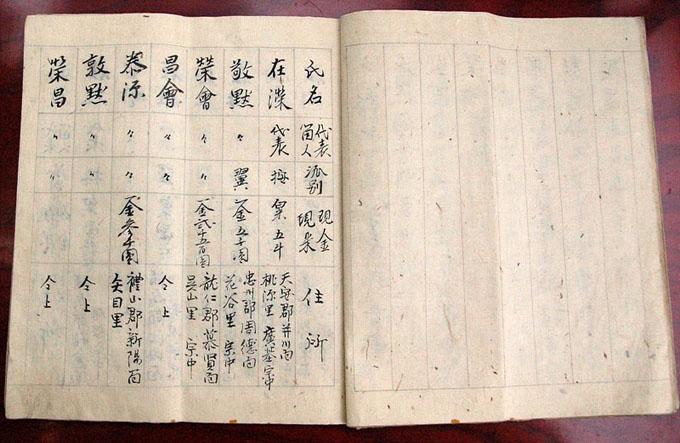 氏名 代表 箇人 派別 現金 現米 住所
在濚 代表 按 租 五斗 天安郡并川面 桃源里 廣基宗中
敬默 〃 翼 金五千圓 忠州郡周德面 花谷里 宗中
榮會 〃 〃 金弐千五百圓 龍仁郡慕賢面 吳山里 宗中
昌會 々 々 仝上
泰源 々 〃 金參千圓 禮山郡新陽面 
敦默 〃 〃 仝上
榮昌 〃 〃 仝上